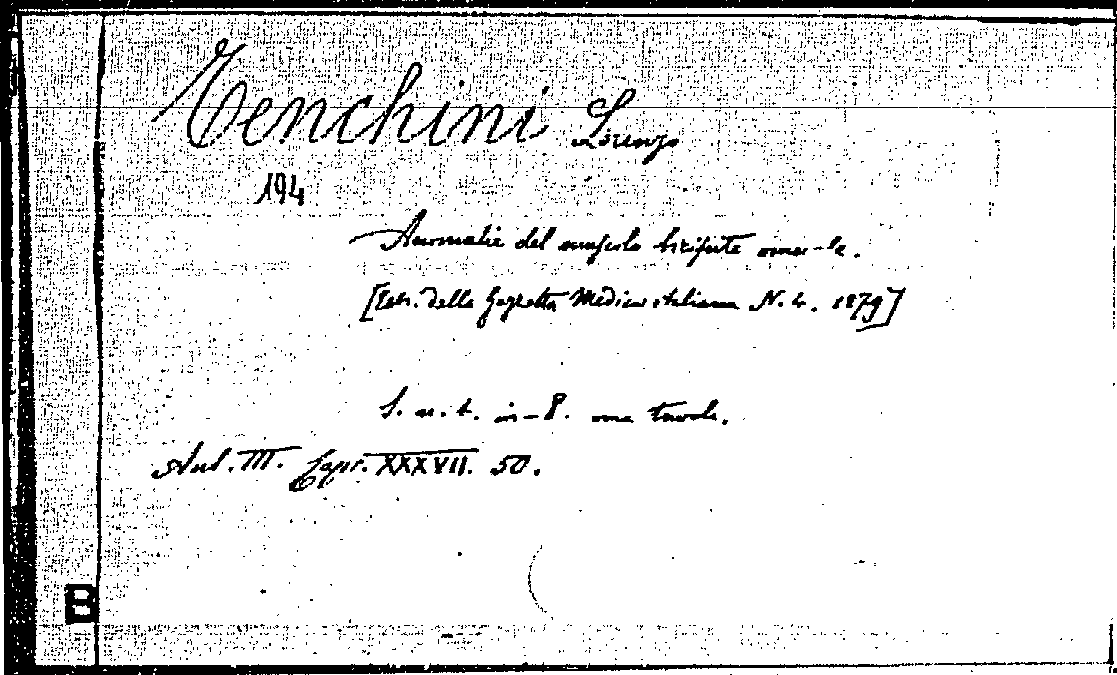 Tenchini Lorenzo
194
Anomalie del muscolo bicipite omerale.
[Estr. dalla Gazzetta Medica italiana N. 4. 1879]
S. n. t. in-8. una tavola.
Aul. III. Capr. XXXVII. 50.
B